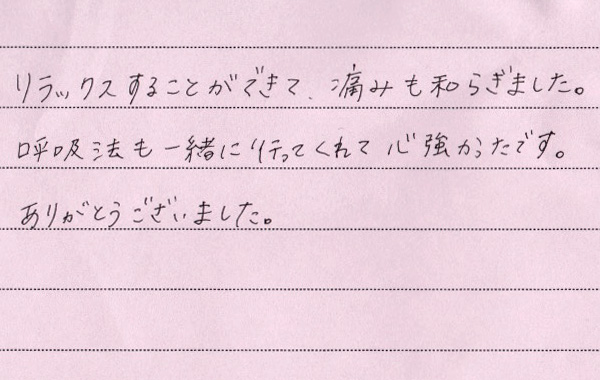 リラックスすることができて、痛みも和らぎました。
呼吸法も一緒に行ってくれて心強かったです。
ありがとうございました。